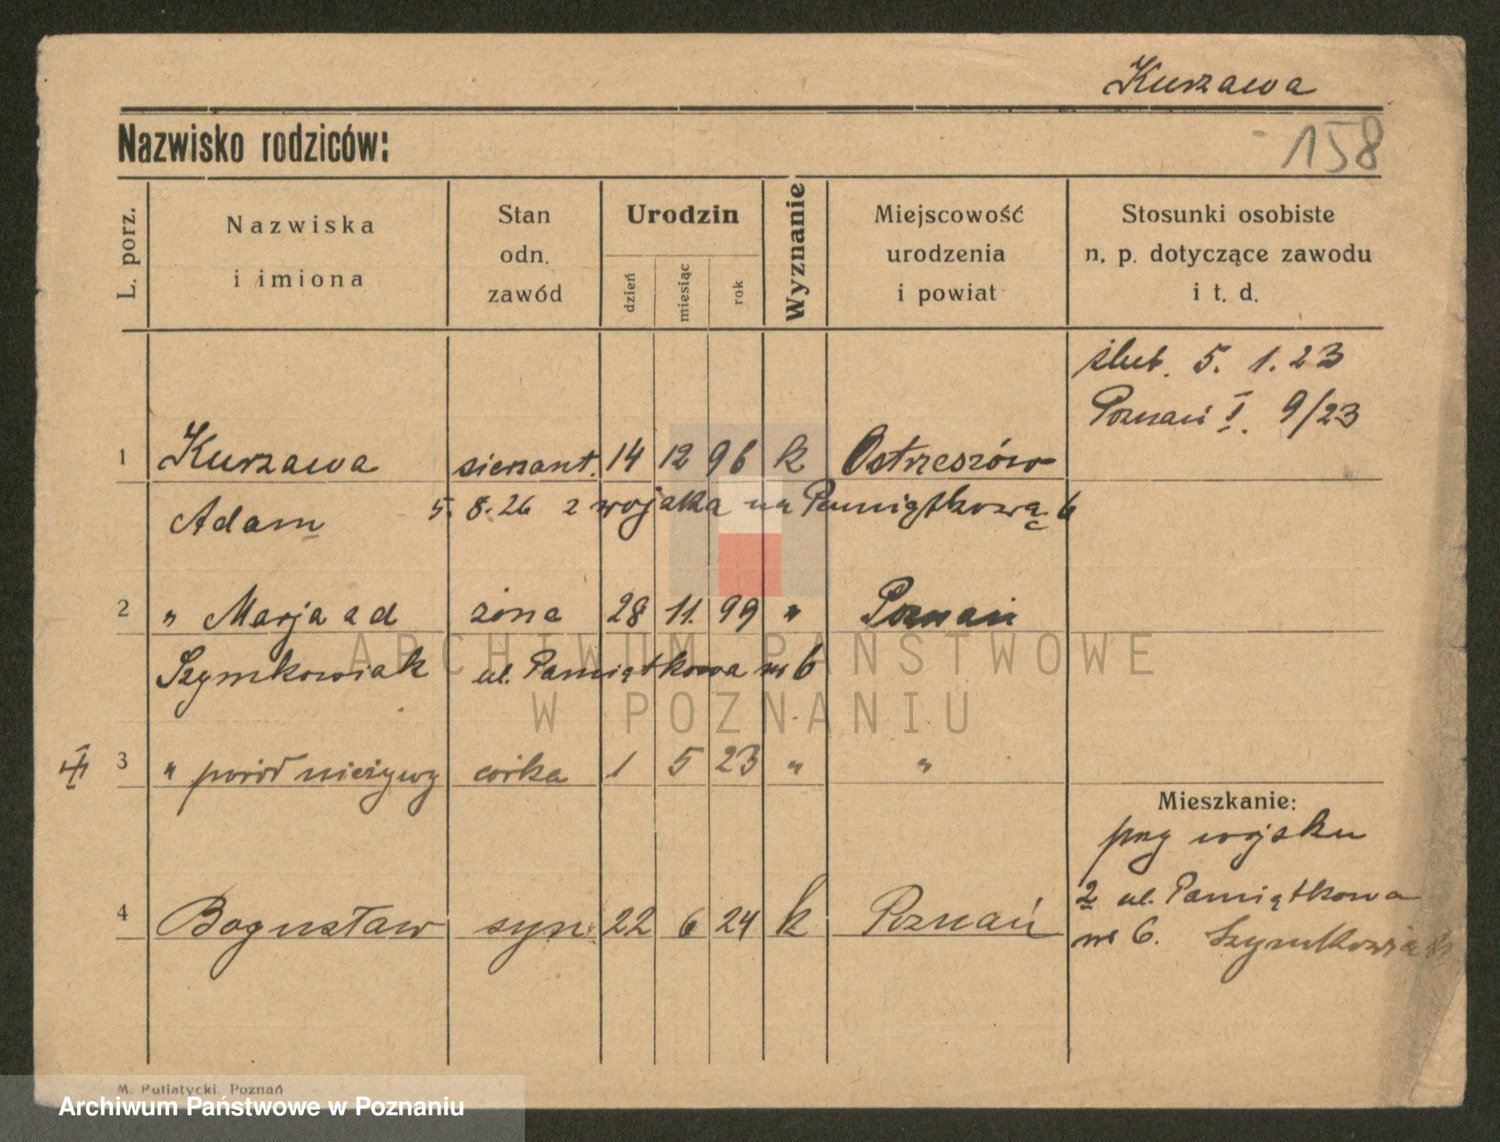 Kurzawa
Nazwisko rodziców:
158
L. porz.
Nazwiska
i imiona
Stan
odn.
zawód
Urodzin
dzień
miesiąc
rok
Wyznanie
Miejscowość
urodzenia
i powiat
Stosunki osobiste
n. p. dotyczące zawodu
i t. d.
ślub. 5. 1. 23
Poznań I. 9/23
1 Kurzawa sierżant. 14 12 96 k Ostrzeszów
Adam 5. 8. 26 z wojska na Pamiątkową 6
2 " Marja ad żona 28 11. 99 " Poznań
Szymkowiak ul. Pamiątkowa nr 6
3 " poród nieżywy córka 1 5 23 " "
Mieszkanie:
przy wojsku
4 Bogusław syn 22 6 24 k Poznań
2 ul. Pamiątkowa
nr 6. Szymkowiak
M. Putiatycki, Poznań
ARCHIWUM PAŃSTWOWE
W POZNANIU
Archiwum Państwowe w Poznaniu